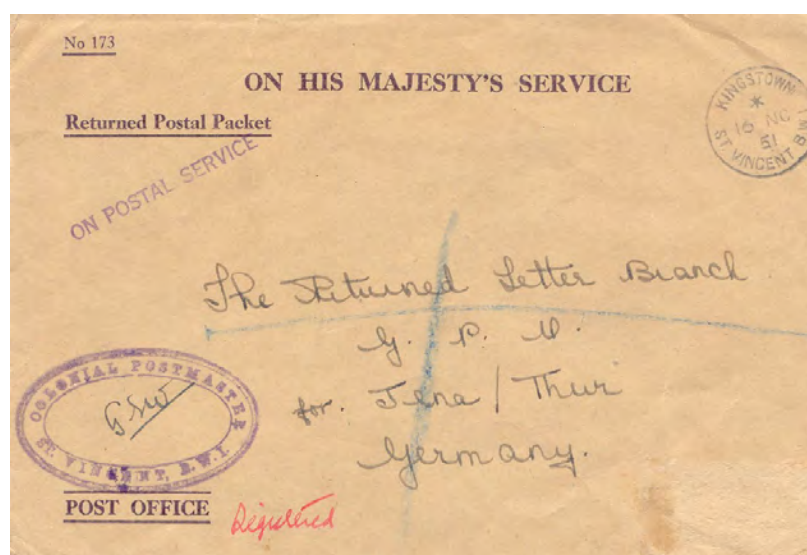 No 173
ON HIS MAJESTY'S SERVICE
Returned Postal Packet
KINGSTOWN
*
16 NO
51
ST. VINCENT B.W.
ON POSTAL SERVICE
The Returned Letter Branch
G. P. O.
for. Jena / Thur
Germany.
COLONIAL POSTMASTER
ST. VINCENT, B.W.I.
POST OFFICE
Registered